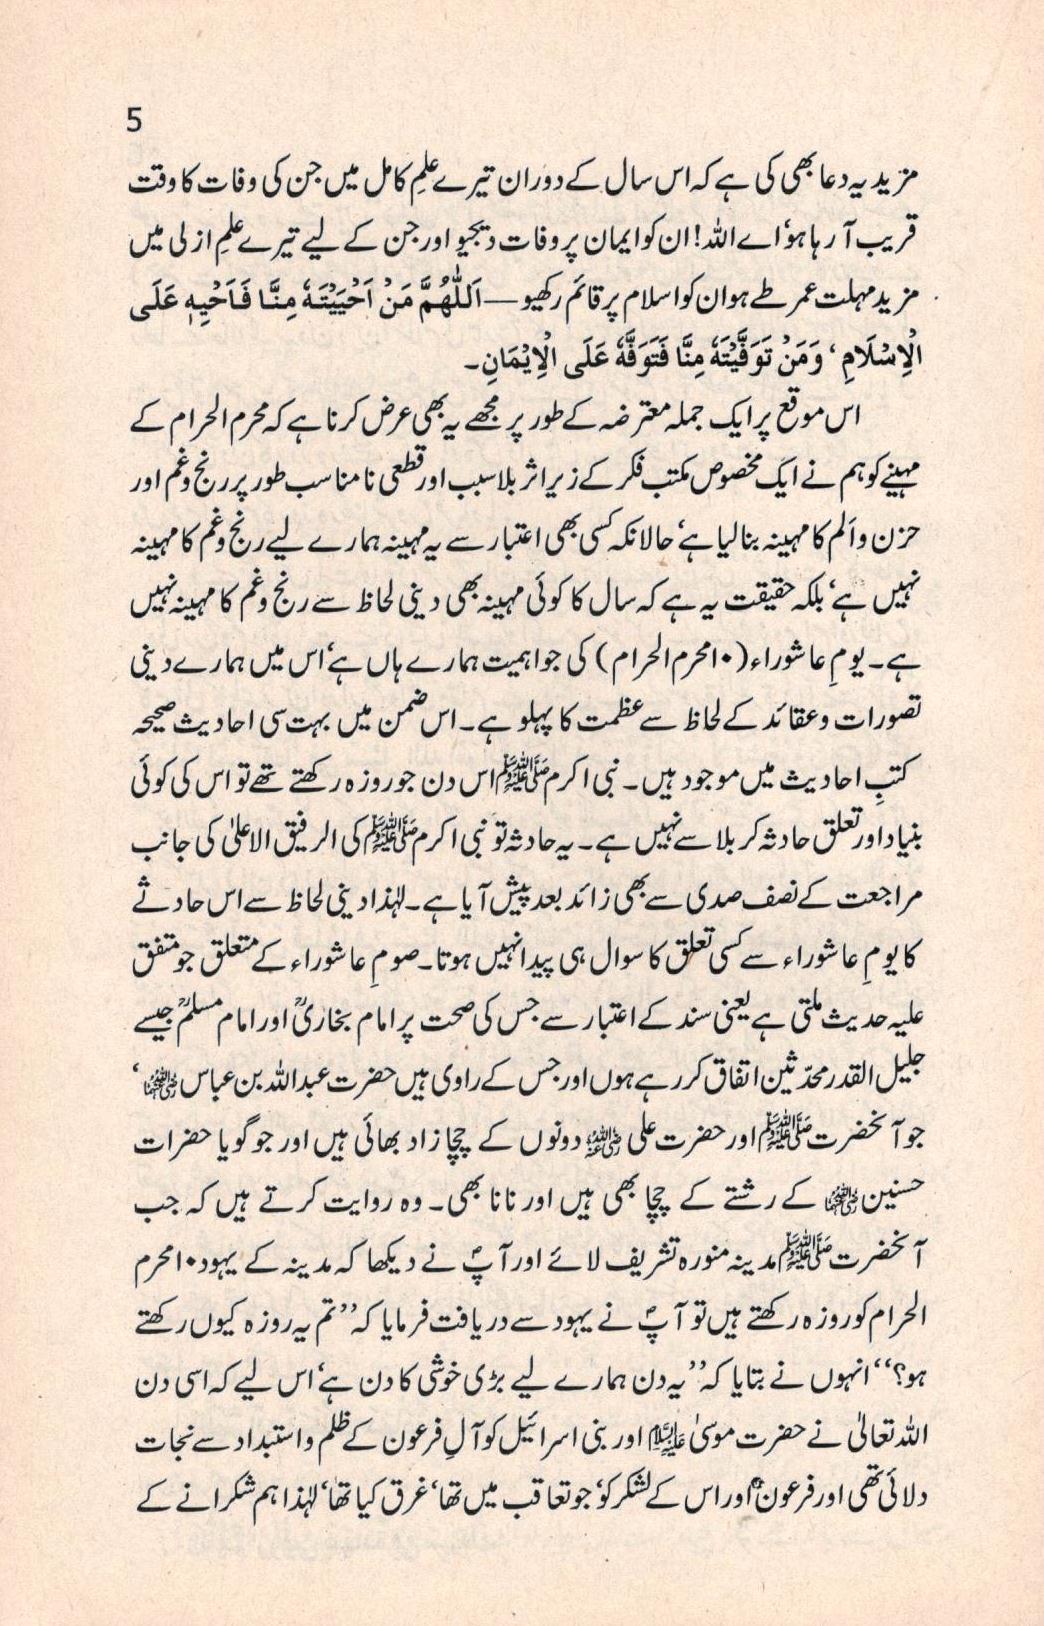 5
مزید یہ دعا بھی کی ہے کہ اس سال کے دوران تیرے علمِ کامل میں جن کی وفات کا وقت
قریب آ رہا ہو‘ اے اللہ! ان کو ایمان پر وفات دیجیو اور جن کے لیے تیرے علمِ ازلی میں
مزید مہلت عمر طے ہو ان کو اسلام پر قائم رکھیو — اَللّٰھُمَّ مَنْ اَحْیَیْتَہٗ مِنَّا فَاَحْیِہٖ عَلَی
الْاِسْلَامِ‘ وَمَنْ تَوَفَّیْتَہٗ مِنَّا فَتَوَفَّہٗ عَلَی الْاِیْمَانِ۔
اس موقع پر ایک جملہ معترضہ کے طور پر مجھے یہ بھی عرض کرنا ہے کہ محرم الحرام کے
مہینے کو ہم نے ایک مخصوص مکتب فکر کے زیر اثر بلاسبب اور قطعی نامناسب طور پر رنج و غم اور
حزن و اَلم کا مہینہ بنا لیا ہے‘ حالانکہ کسی بھی اعتبار سے یہ مہینہ ہمارے لیے رنج و غم کا مہینہ
نہیں ہے‘ بلکہ حقیقت یہ ہے کہ سال کا کوئی مہینہ بھی دینی لحاظ سے رنج و غم کا مہینہ نہیں
ہے۔ یومِ عاشوراء (۱۰ محرم الحرام) کی جو اہمیت ہمارے ہاں ہے‘ اس میں ہمارے دینی
تصورات و عقائد کے لحاظ سے عظمت کا پہلو ہے۔ اس ضمن میں بہت سی احادیث صحیحہ
کتبِ احادیث میں موجود ہیں۔ نبی اکرم ﷺ اس دن جو روزہ رکھتے تھے تو اس کی کوئی
بنیاد اور تعلق حادثہ کربلا سے نہیں ہے۔ یہ حادثہ تو نبی اکرم ﷺ کی الرفیق الاعلیٰ کی جانب
مراجعت کے نصف صدی سے بھی زائد بعد پیش آیا ہے۔ لہٰذا دینی لحاظ سے اس حادثے
کا یومِ عاشوراء سے کسی تعلق کا سوال ہی پیدا نہیں ہوتا۔ صومِ عاشوراء کے متعلق جو متفق
علیہ حدیث ملتی ہے یعنی سند کے اعتبار سے جس کی صحت پر امام بخاریؒ اور امام مسلمؒ جیسے
جلیل القدر محدّثین اتفاق کر رہے ہوں اور جس کے راوی ہیں حضرت عبداللہ بن عباس رضی اللہ عنہما‘
جو آنحضرت ﷺ اور حضرت علی رضی اللہ عنہ دونوں کے چچا زاد بھائی ہیں اور جو گویا حضرات
حسنین رضی اللہ عنہما کے رشتے کے چچا بھی ہیں اور نانا بھی۔ وہ روایت کرتے ہیں کہ جب
آنحضرت ﷺ مدینہ منورہ تشریف لائے اور آپؐ نے دیکھا کہ مدینہ کے یہود ۱۰ محرم
الحرام کو روزہ رکھتے ہیں تو آپؐ نے یہود سے دریافت فرمایا کہ ’’تم یہ روزہ کیوں رکھتے
ہو؟‘‘ انہوں نے بتایا کہ ’’یہ دن ہمارے لیے بڑی خوشی کا دن ہے‘ اس لیے کہ اسی دن
اللہ تعالیٰ نے حضرت موسیٰ علیہ السلام اور بنی اسرائیل کو آلِ فرعون کے ظلم و استبداد سے نجات
دلائی تھی اور فرعون اور اس کے لشکر کو‘ جو تعاقب میں تھا‘ غرق کیا تھا‘ لہٰذا ہم شکرانے کے